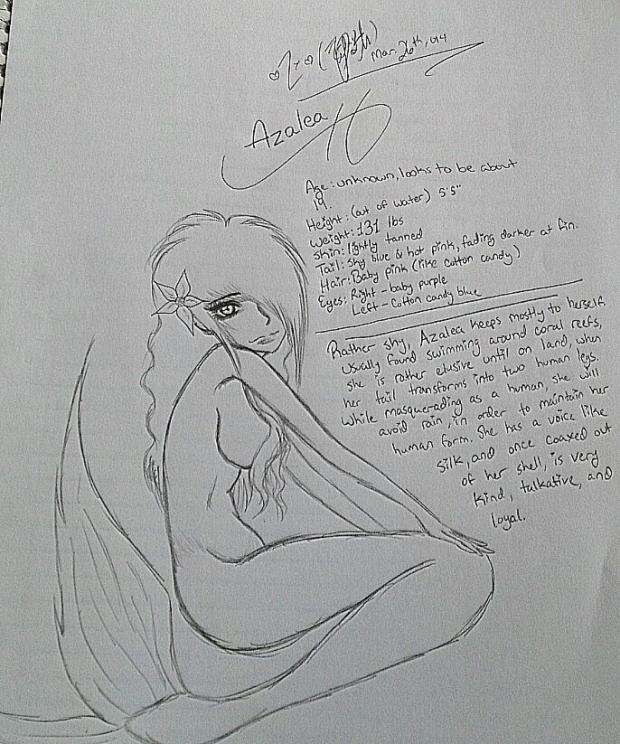 Mar. 26th, 014
Azalea
Age: unknown, looks to be about
19.
Height: (out of water) 5'5"
Weight: 131 lbs
Skin: lightly tanned
Tail: Sky blue & hot pink, fading darker at fin.
Hair: Baby pink (like cotton candy)
Eyes: Right - baby purple
Left - Cotton candy blue
Rather shy, Azalea keeps mostly to herself.
Usually found swimming around coral reefs,
she is rather elusive until on land, when
her tail transforms into two human legs.
While masquerading as a human, she will
avoid rain, in order to maintain her
human form. She has a voice like
silk, and once coaxed out
of her shell, is very
kind, talkative, and
loyal.